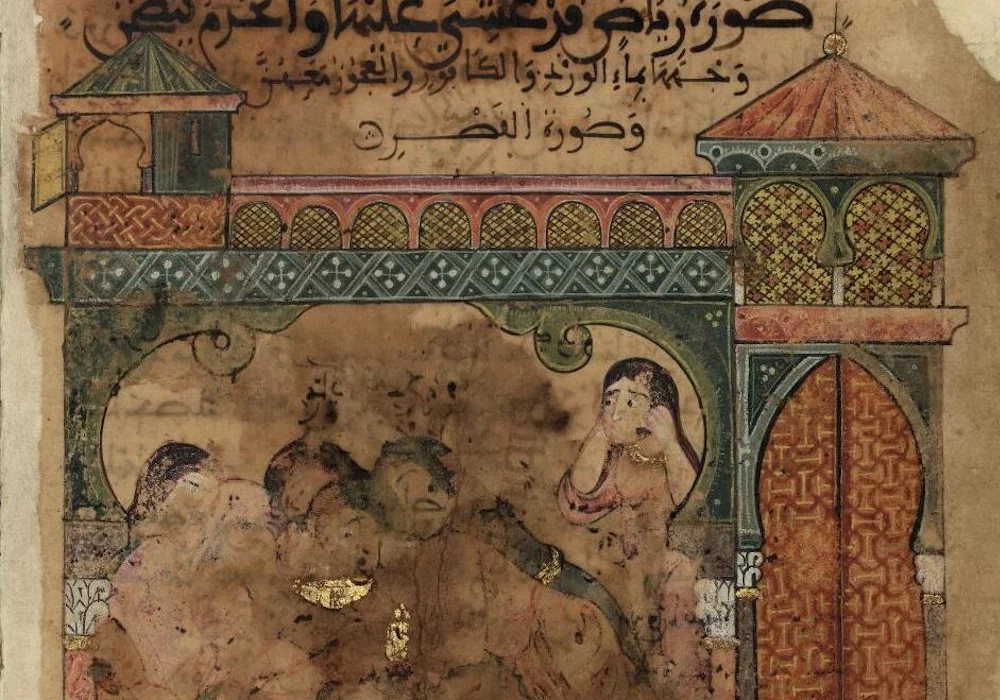 صورة رياض قد غُشِيَ عَلَيْهَا وَالخدم ينضحن
وجهها بماءِ الورد والكافور والعجوز معهنَّ
وصورة القصر